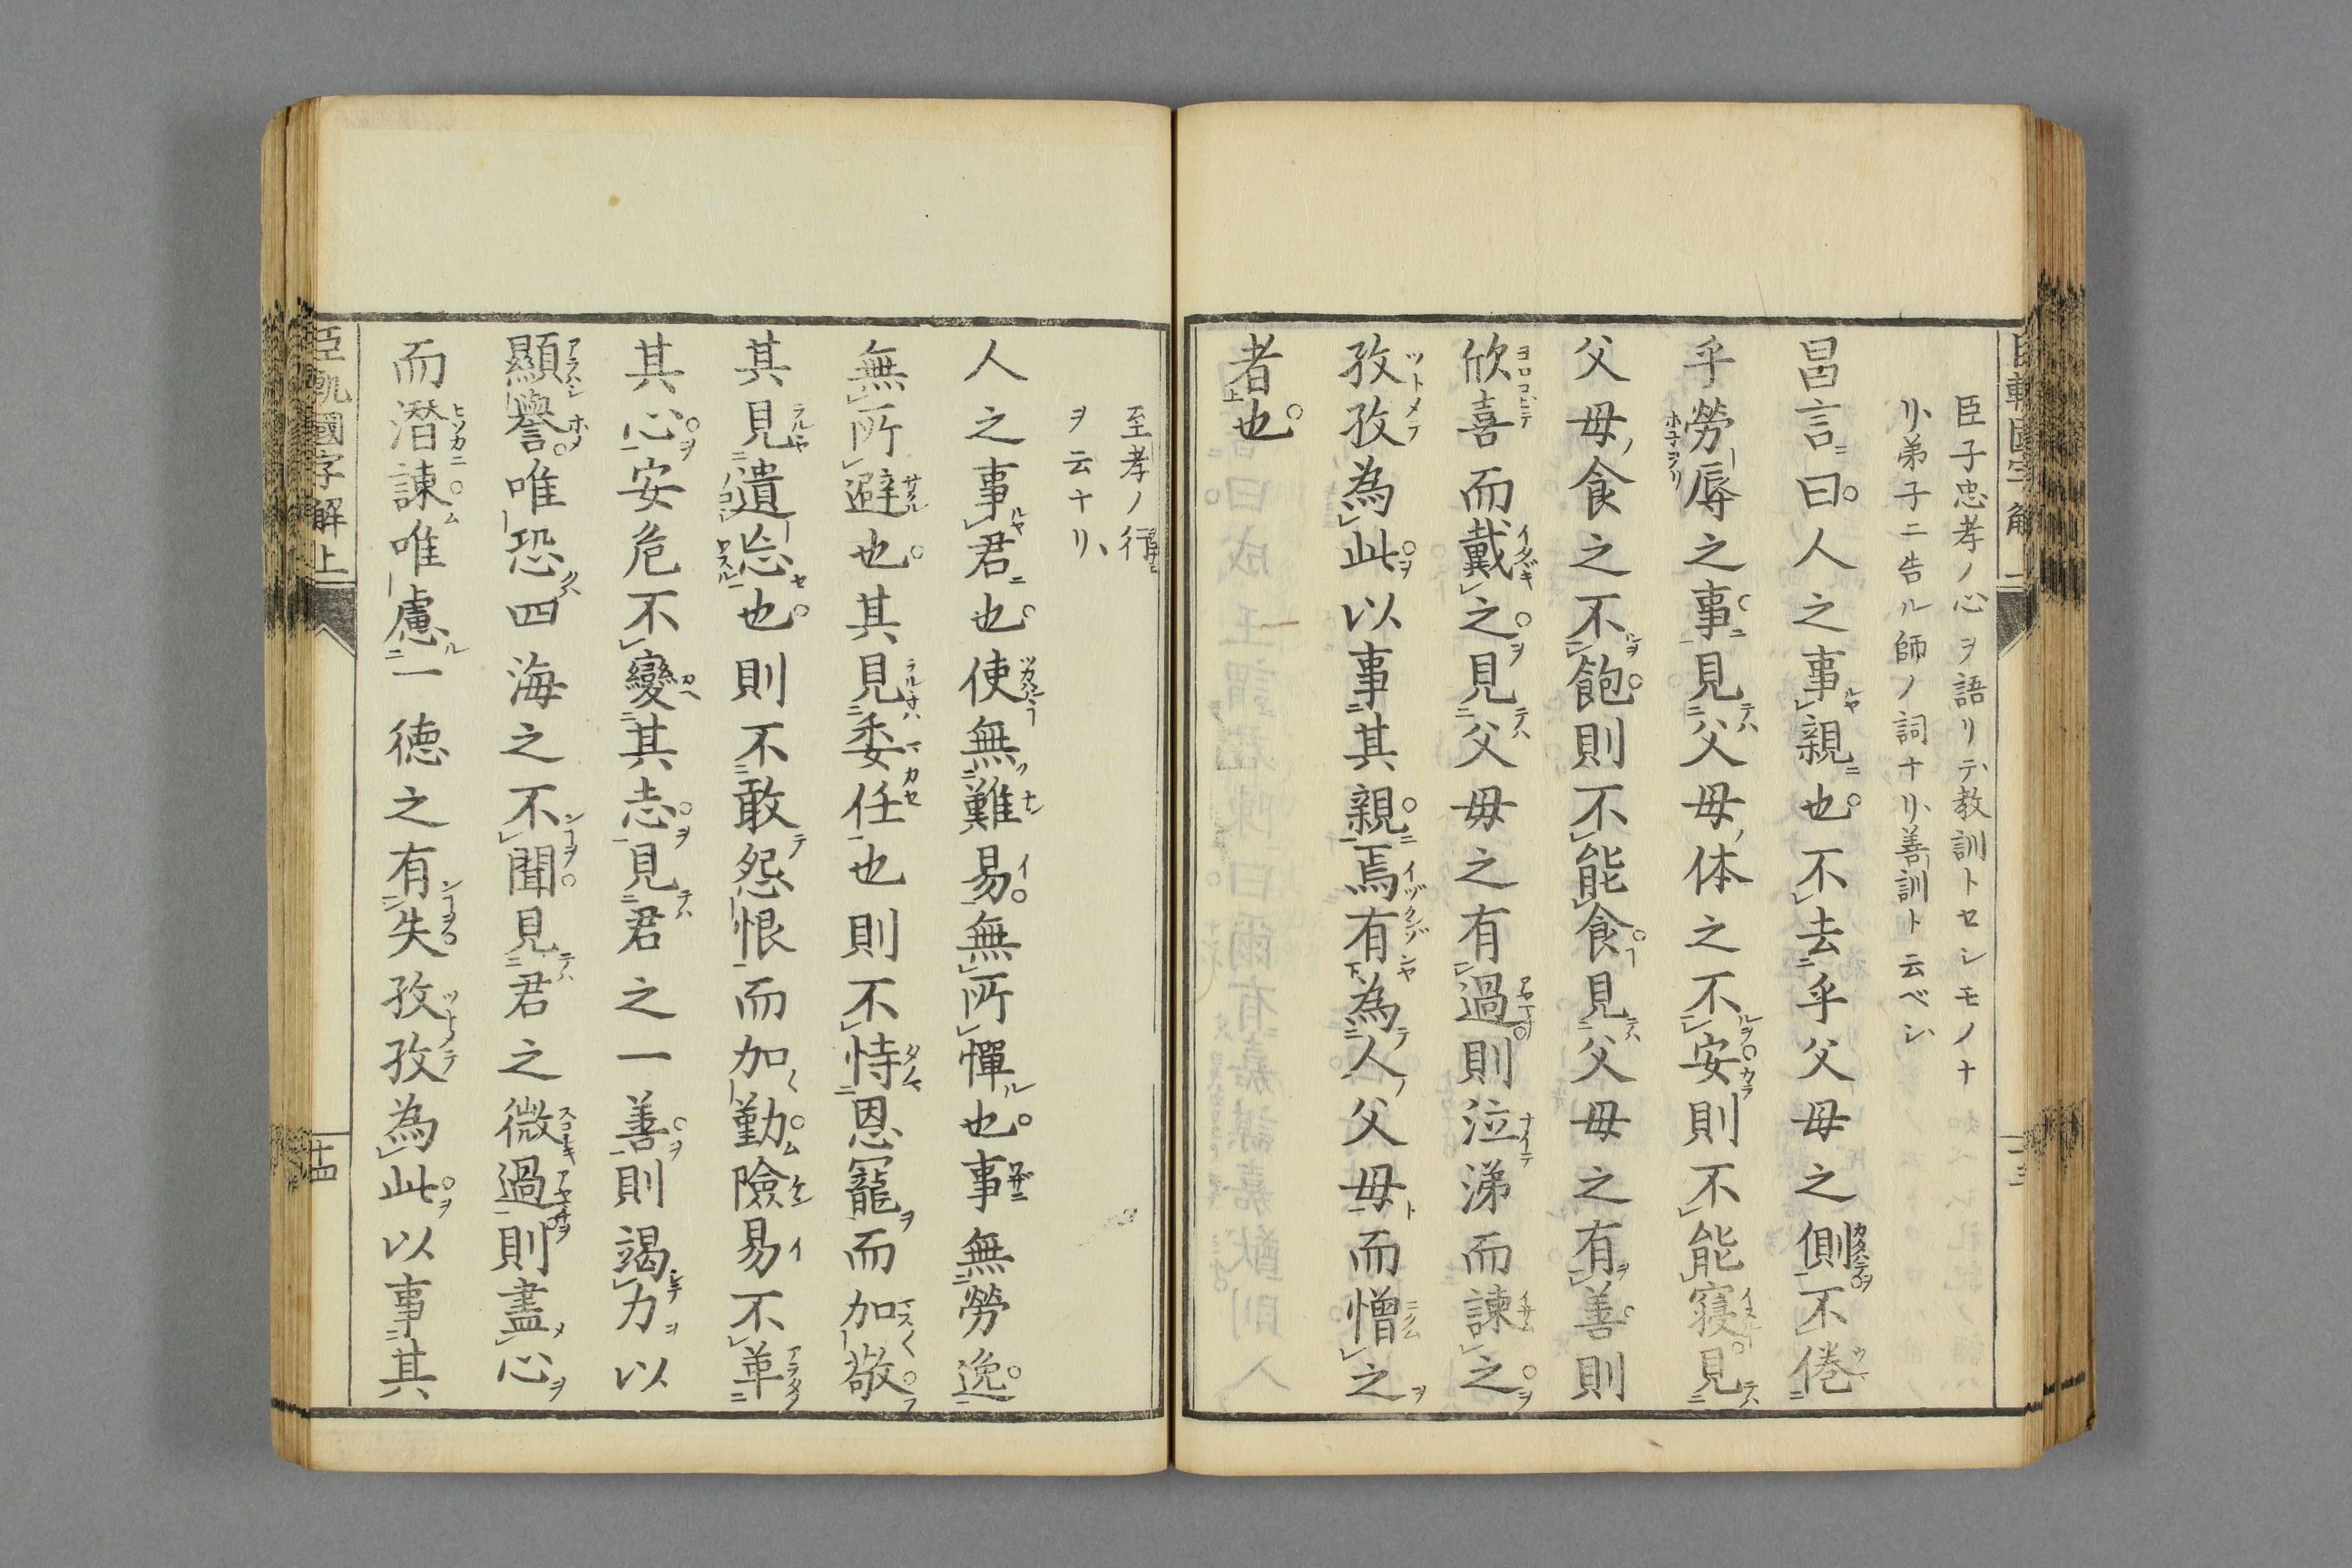 臣子忠孝ノ心ヲ語リテ、教訓トセシモノナ
リ、弟子ニ告ル師ノ詞ナリ、善訓ト云ベシ
昌言曰人之事親也不去乎父母之側不倦
乎勞辱之事見父母体之不安則不能寝見
父母食之不飽則不能食見父母之有善則
欣喜而戴之見父母之有過則泣涕而諫之
孜孜為此以事其親焉有為人父母而憎之
者也
至孝ノ行
ヲ云ナリ、
人之事君也使無難易無所憚也事無勞逸
無所避也其見委任也則不恃恩寵而加敬
其見遺忘也則不敢怨恨而加勤險易不革
其心安危不變其志見君之一善則竭力以
顯譽唯恐四海之不聞見君之微過則盡心
而潜諫唯慮一徳之有失孜孜為此以事其
臣軌國字解上
十四